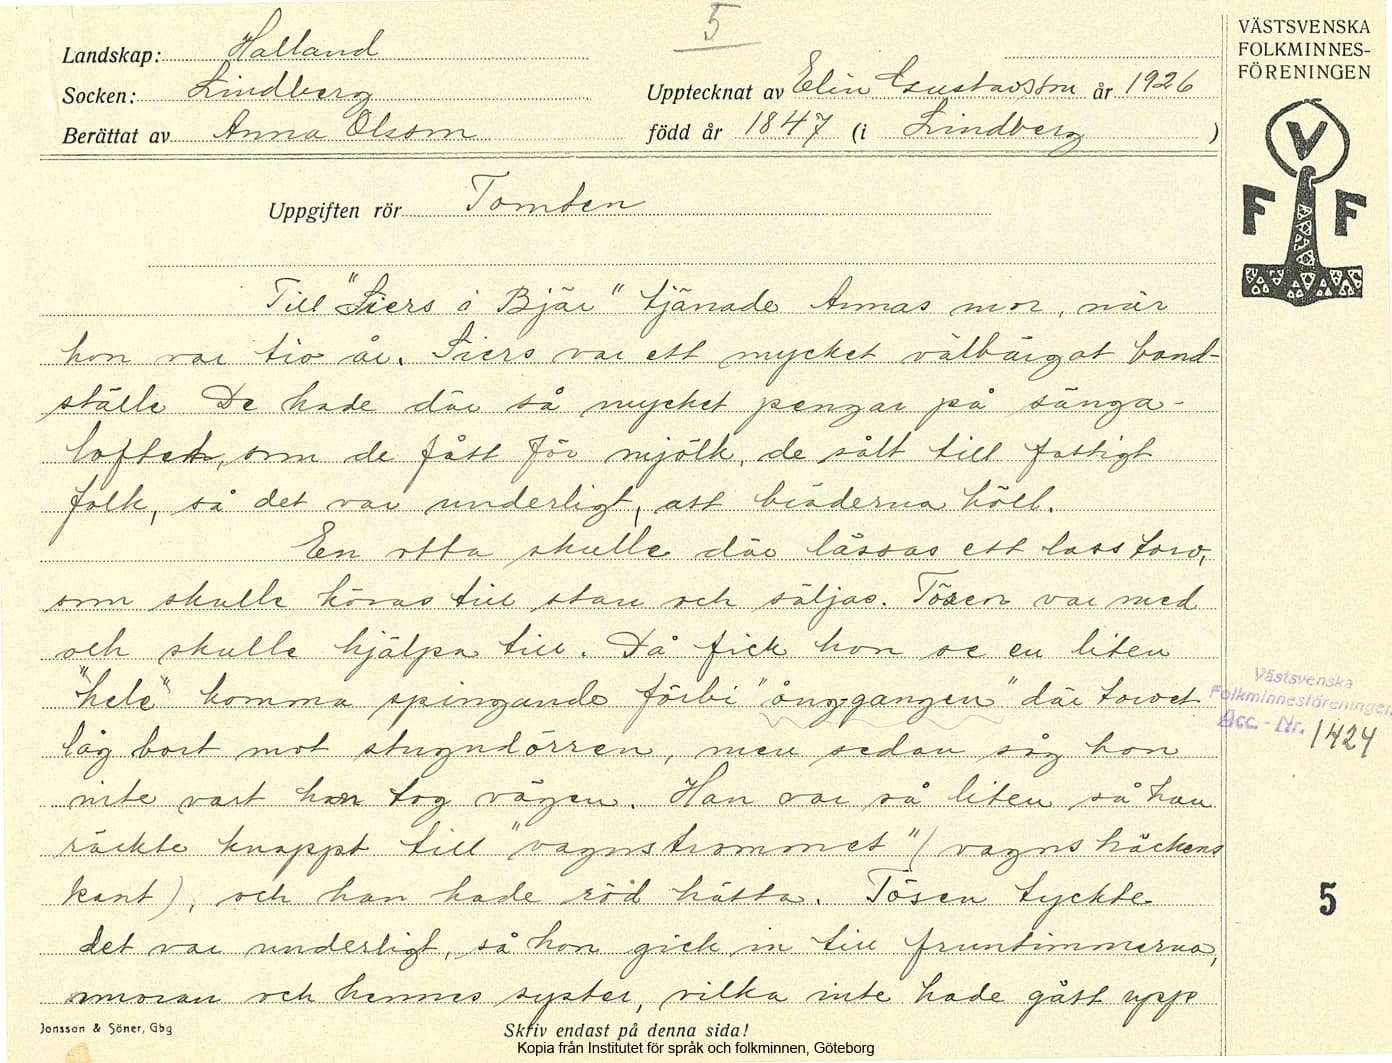 5
Landskap: Halland
Socken: Lindberg
Upptecknat av Elin Gustavsson år 1926
Berättat av Anna Olsson
född år 1847 (i Lindberg)
VÄSTSVENSKA
FOLKMINNES-
FÖRENINGEN
V
F F
Uppgiften rör Tomten
Till "Siers i Bjär" tjänade Annas mor, när
hon var tio år. Siers var ett mycket välbärgat bond-
ställe De hade där så mycket pengar på sänga-
loftet, som de fått för mjölk, de sålt till fattigt
folk, så det var underligt, att bräderna höll.
En otta skulle där lässas ett lass torv,
som skulle köras till stan och säljas. Tösen var med
och skulle hjälpa till. Då fick hon se en liten
"hele" komma springande förbi "ånggangen" där torvet
låg bort mot stugndörren, men sedan såg hon
inte vart han tog vägen. Han var så liten så han
räckte knappt till "vagnstrommet" (vagnshäckens
kant), och han hade röd hätta. Tösen tyckte
det var underligt, så hon gick in till fruntimmerna,
moran och hennes syster, vilka inte hade gått upp
Västsvenska
Folkminnesföreningen
Acc.-Nr. 1424
5
Jonsson & Söner, Gbg
Skriv endast på denna sida!
Kopia från Institutet för språk och folkminnen, Göteborg